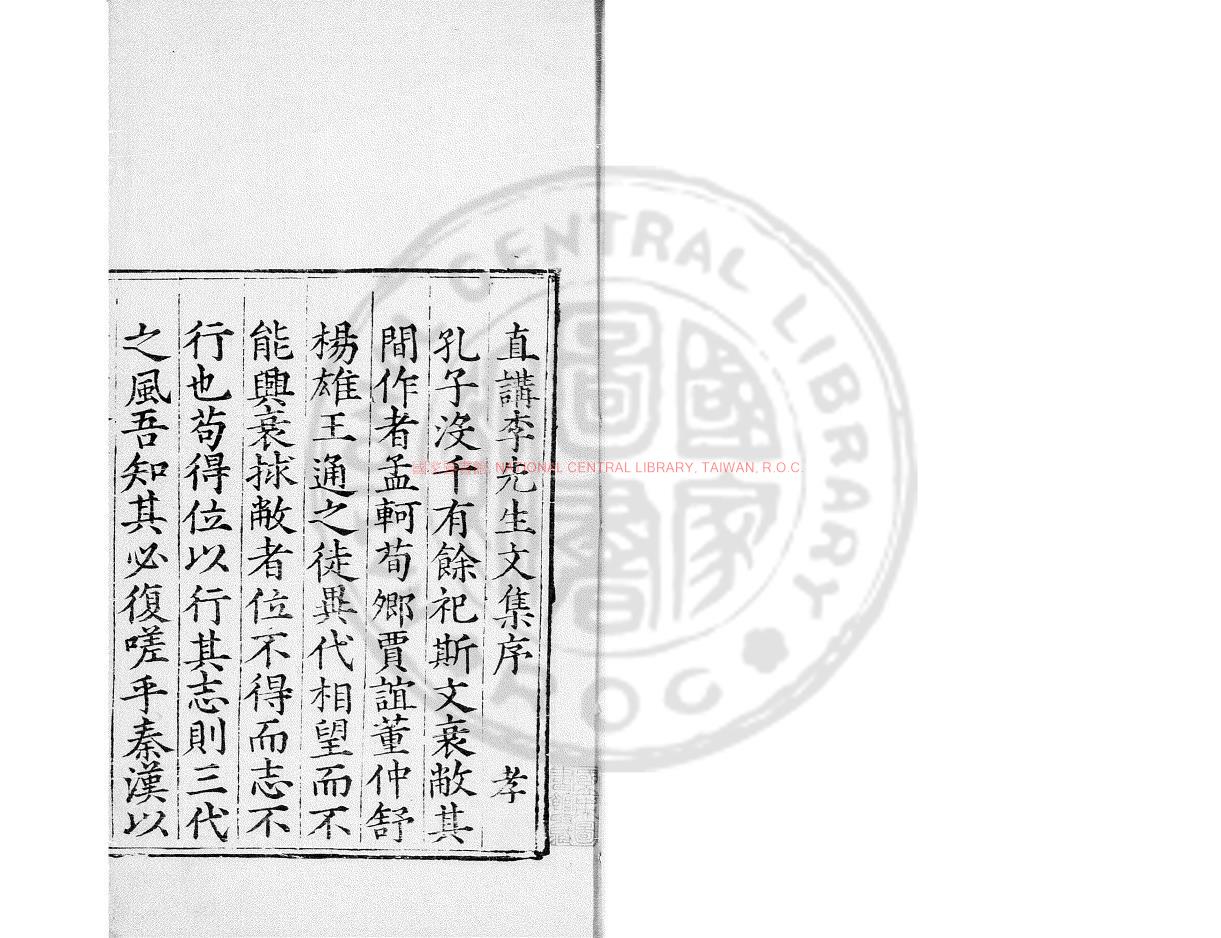 直講李先生文集序 孝
孔子沒千有餘祀斯文衰敝其
間作者孟軻荀卿賈誼董仲舒
楊雄王通之徒異代相望而不
能興衰捄敝者位不得而志不
行也苟得位以行其志則三代
之風吾知其必復嗟乎秦漢以
國家圖書館 NATIONAL CENTRAL LIBRARY, TAIWAN, R.O.C.
CENTRAL LIBRARY
ROC
國家圖書